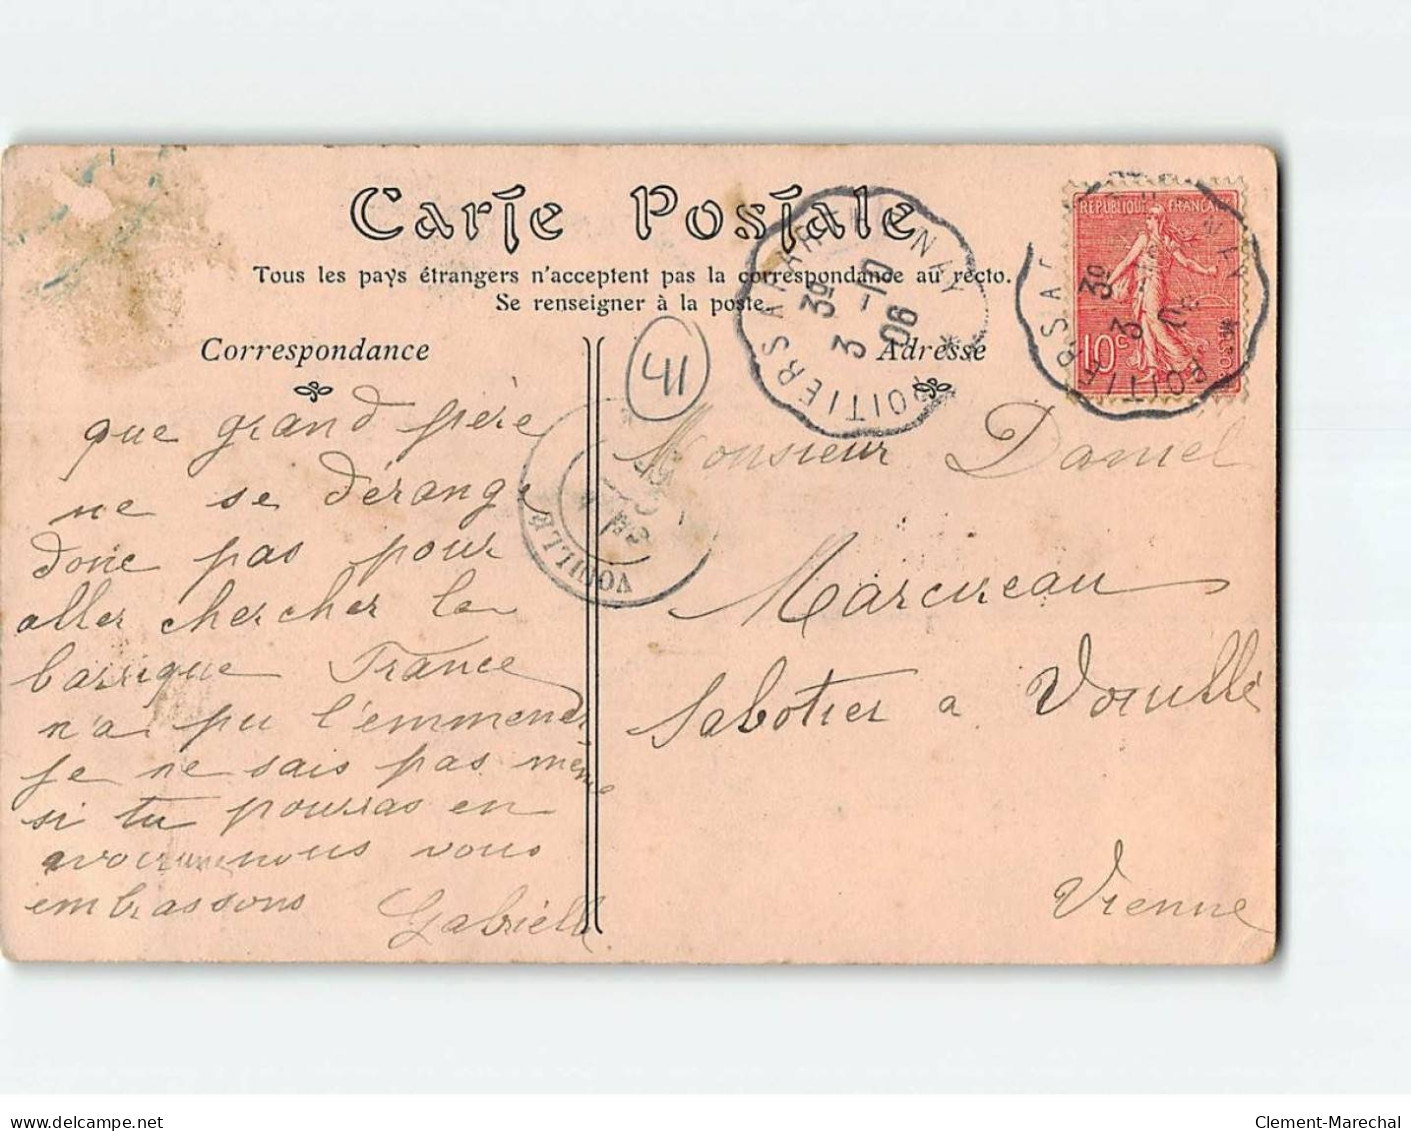 Carte Postale
Tous les pays étrangers n'acceptent pas la correspondance au recto.
Se renseigner à la poste.
Correspondance
Adresse
41
que grand père
ne se dérange
donc pas pour
aller chercher la
barrique France
n'a pu l'emmener
je ne sais pas même
si tu pourras en
avoir nous vous
embrassons Gabriell
Monsieur Daniel
Marcireau
Sabotier a Vouillé
Vienne
POITIERS A PARTHENAY
3e
3 -10
06
REPUBLIQUE FRANCAISE
10c
POITIERS A
3e
3
VOUILLE
delcampe.net
Clement-Marechal